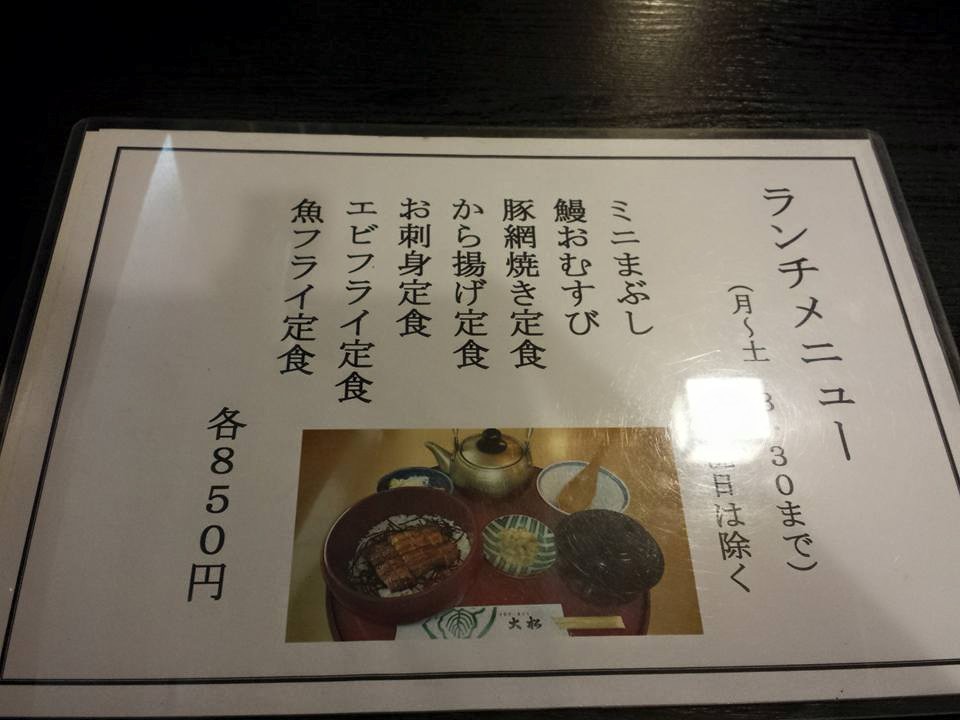 ランチメニュー
(月～土 3:30まで)
日は除く
ミニまぶし
鰻おむすび
豚網焼き定食
から揚げ定食
お刺身定食
エビフライ定食
魚フライ定食
各８５０円